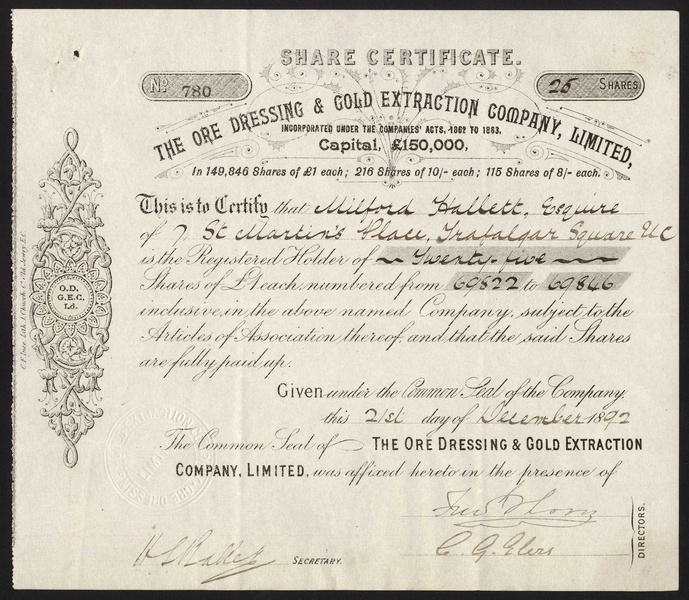 SHARE CERTIFICATE.
No 780
25 SHARES
THE ORE DRESSING & GOLD EXTRACTION COMPANY, LIMITED,
INCORPORATED UNDER THE COMPANIES' ACTS, 1862 TO 1883.
Capital, £150,000,
In 149,846 Shares of £1 each; 216 Shares of 10/- each; 115 Shares of 8/- each.
This is to Certify that Milford Hallett, Esquire
of 7, St Martin's Place, Trafalgar Square WC
is the Registered Holder of Twenty-five
Shares of £1 each, numbered from 69822 to 69846
inclusive, in the above named Company, subject to the
Articles of Association thereof, and that the said Shares
are fully paid up.
O.D.
G.E.C.
Ld.
Given under the Common Seal of the Company,
this 21st day of December 1892
The Common Seal of THE ORE DRESSING & GOLD EXTRACTION
COMPANY, LIMITED, was affixed hereto in the presence of
SECRETARY.
DIRECTORS.